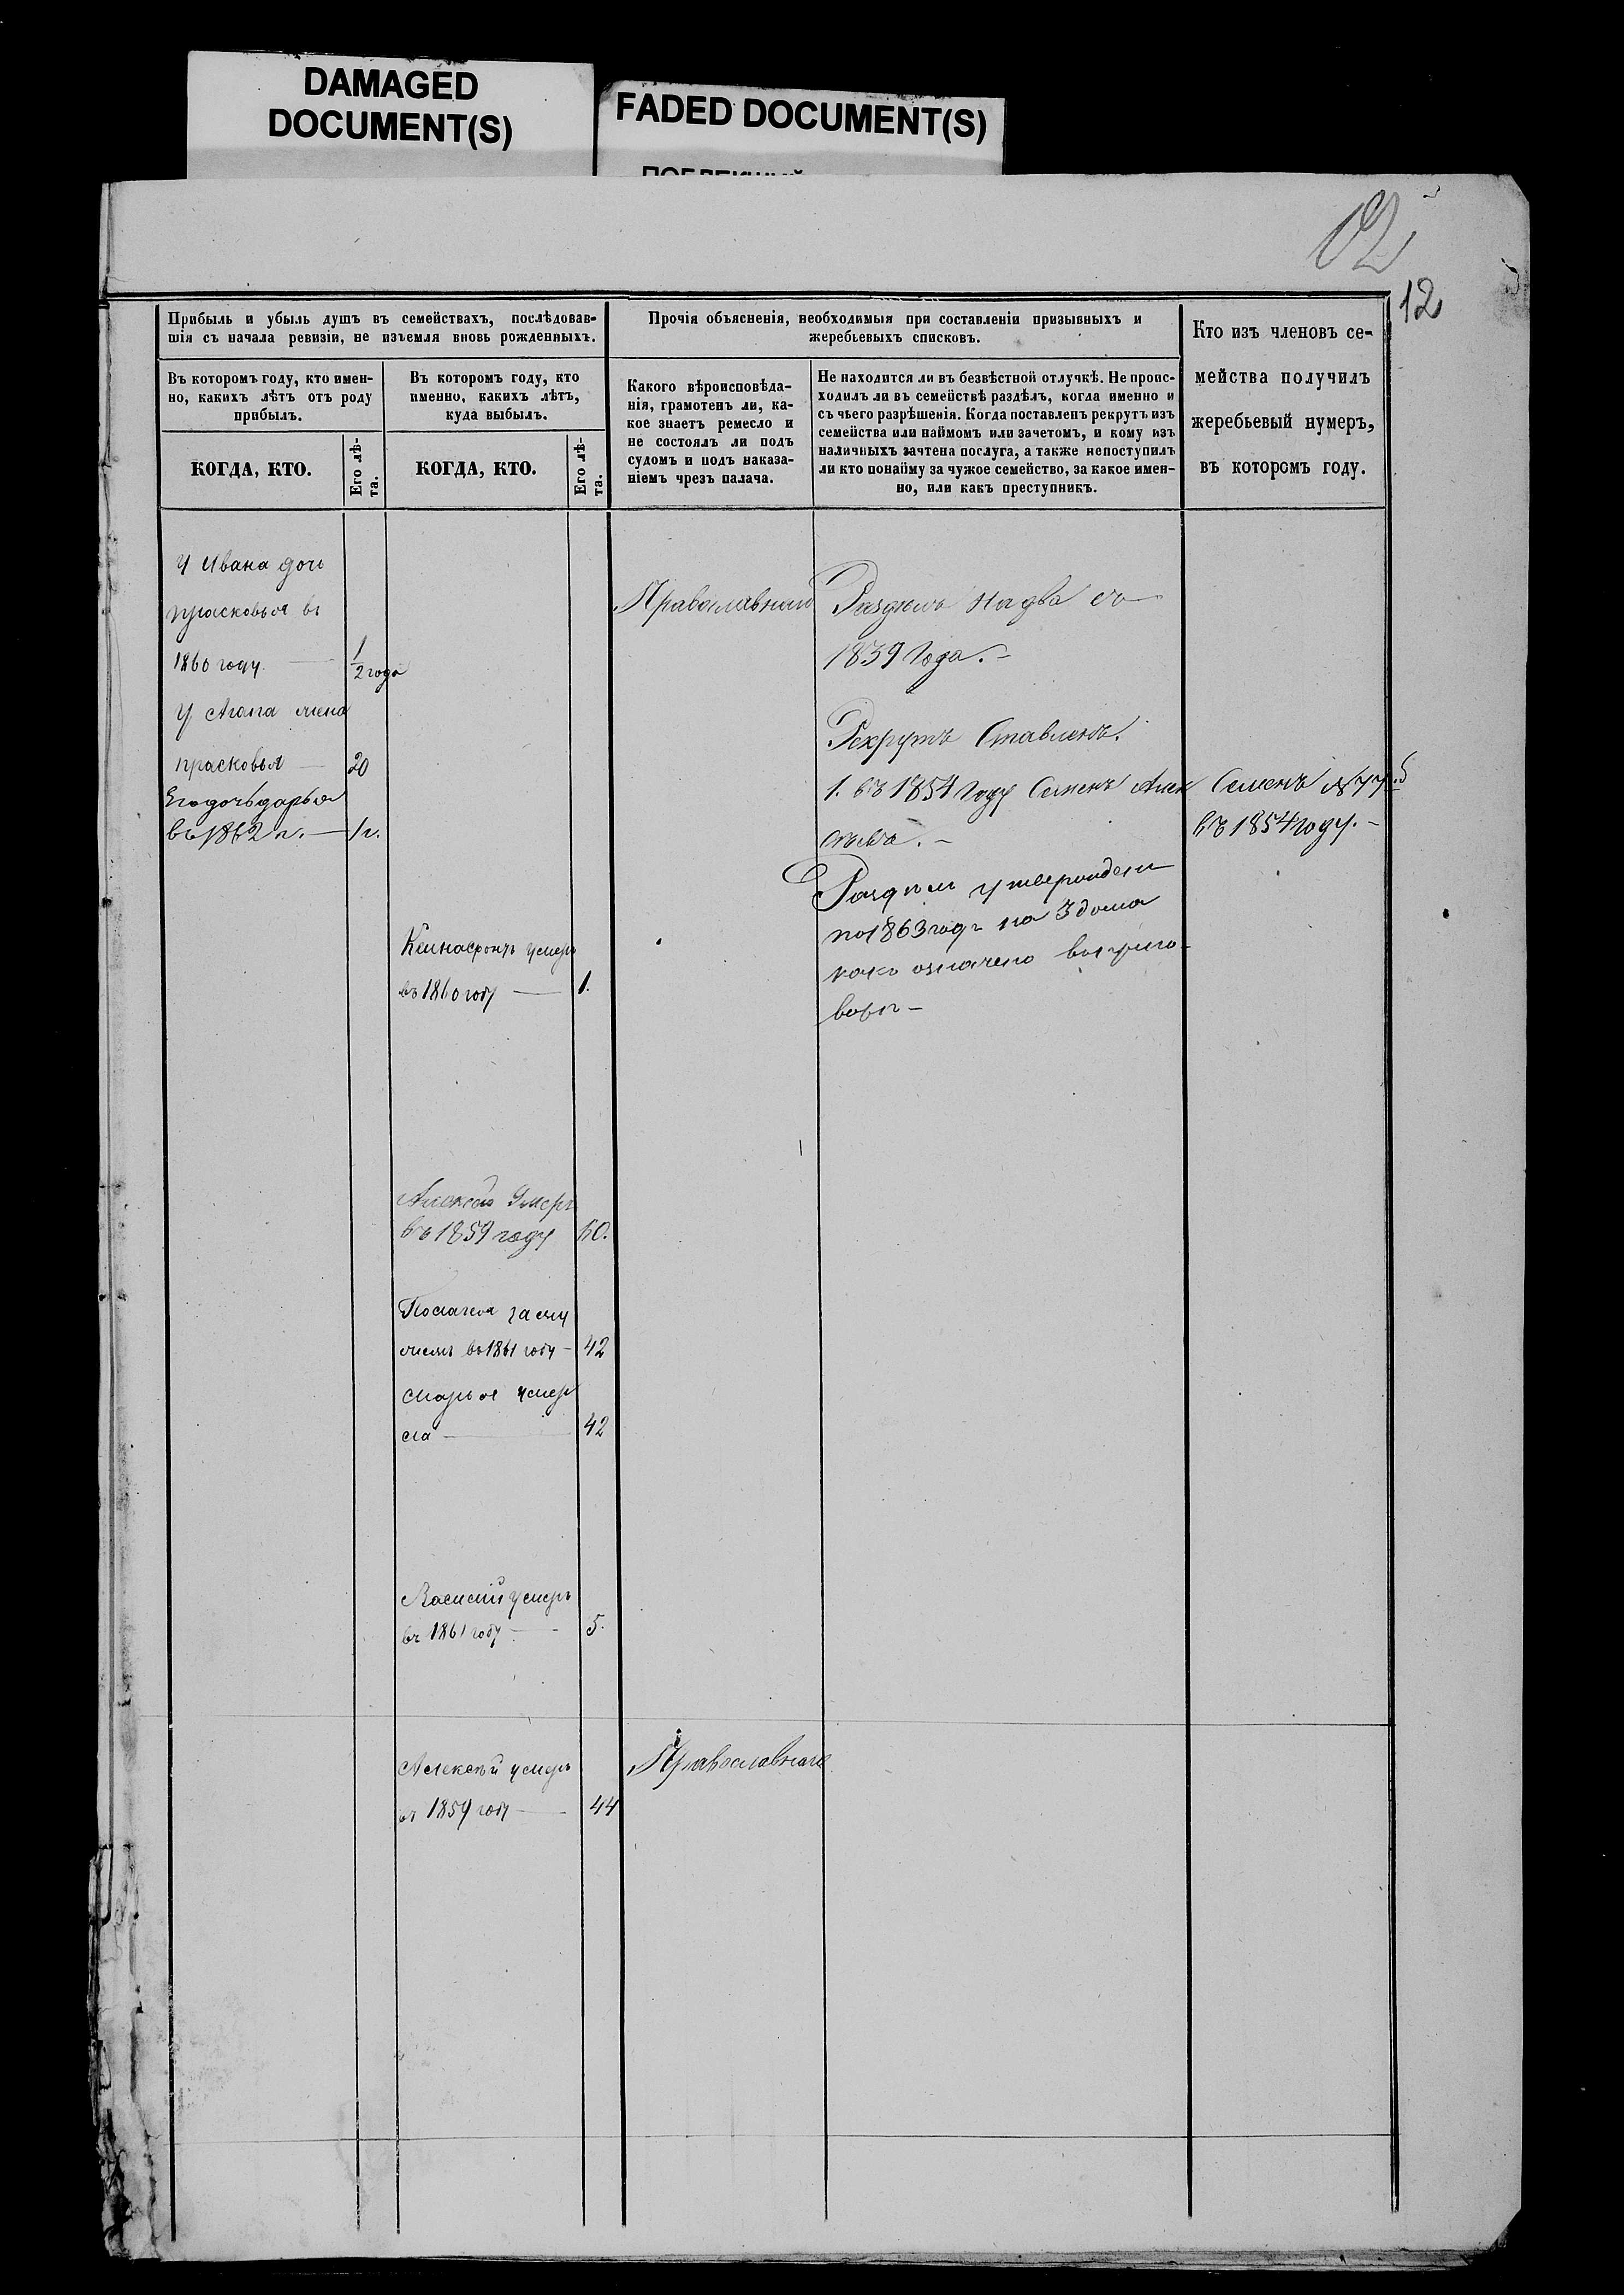 DAMAGED
DOCUMENT(S)
FADED DOCUMENT(S)
12
12
Прибыль и убыль душъ въ семействахъ, послѣдовав-
шія съ начала ревизіи, не изъемля вновь рожденныхъ.
Въ которомъ году, кто имен-
но, какихъ лѣтъ отъ роду
прибылъ.
КОГДА, КТО.
Его лѣ-
та.
Въ которомъ году, кто
именно, какихъ лѣтъ,
куда выбылъ.
КОГДА, КТО.
Его лѣ-
та.
Прочія объясненія, необходимыя при составленіи призывныхъ и
жеребьевыхъ списковъ.
Какого вѣроисповѣда-
нія, грамотенъ ли, ка-
кое знаетъ ремесло и
не состоялъ ли подъ
судомъ и подъ наказа-
ніемъ чрезъ палача.
Не находится ли въ безвѣстной отлучкѣ. Не проис-
ходилъ ли въ семействѣ раздѣлъ, когда именно и
съ чьего разрѣшенія. Когда поставленъ рекрутъ изъ
семейства или наймомъ или зачетомъ, и кому изъ
наличныхъ зачтена послуга, а также непоступилъ
ли кто понайму за чужое семейство, за какое имен-
но, или какъ преступникъ.
Кто изъ членовъ се-
мейства получилъ
жеребьевый нумеръ,
въ которомъ году.
У Ивана дочь
прасковья въ
1860 году. — 1/2 года
У жена
прасковья — 20
Егодочьдарья
въ 1862 г. — 1 г.
умеръ
въ 1860 году — 1.
Алексей Умеръ
въ 1859 году 60.
за му
жемъ въ 1861 году — 42
Марья умер
ла — 42
Василий умеръ
въ 1861 году — 5.
Алексѣй умеръ
въ 1859 году — 44
Православный
Раздѣлъ На два съ
1839 Года. –
Рекрутъ Ставленъ.
1. въ 1854 Году Семенъ Алек
сѣевъ. –
Раздѣлъ утвержденъ
по 1863 годъ на 3 дома
какъ означено въ приго-
воръ –
Семенъ № 77.
въ 1854 году. –
Православнаго